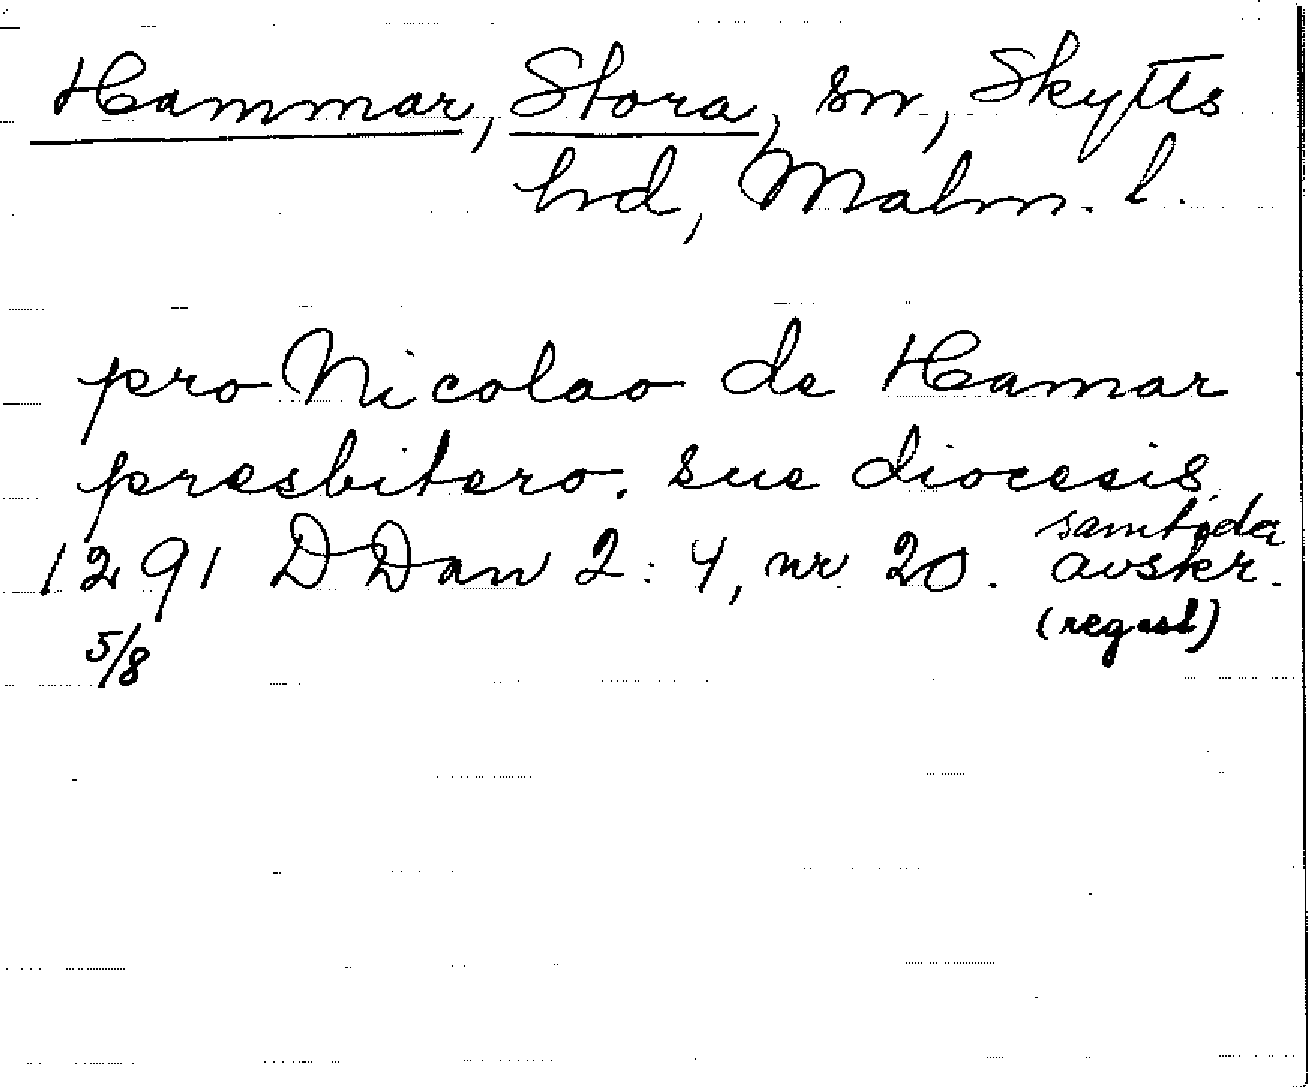 Hammar, Stora, sn, Skytts
hd, Malm. l.
pro Nicolao de Hamar
presbitero. sue diocesis.
samtida
1291 DDan 2: 4, nr 20. avskr.
5/8 (regest)